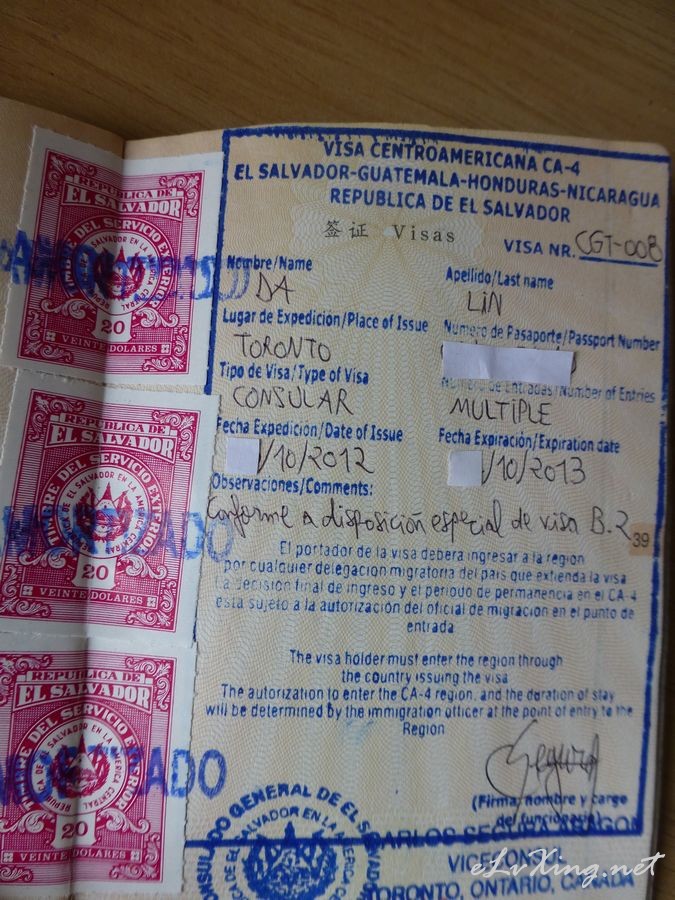 REPUBLICA DE
EL SALVADOR
TIMBRE DEL SERVICIO EXTERIOR
REPUBLICA DE EL SALVADOR EN LA AMERICA CENTRAL
20
VEINTE DOLARES
REPUBLICA DE
EL SALVADOR
TIMBRE DEL SERVICIO EXTERIOR
REPUBLICA DE EL SALVADOR EN LA AMERICA CENTRAL
20
VEINTE DOLARES
REPUBLICA DE
EL SALVADOR
TIMBRE DEL SERVICIO EXTERIOR
REPUBLICA DE EL SALVADOR EN LA AMERICA CENTRAL
20
VEINTE DOLARES
VISA CENTROAMERICANA CA-4
EL SALVADOR-GUATEMALA-HONDURAS-NICARAGUA
REPUBLICA DE EL SALVADOR
签证 Visas
VISA NR. CGT-008
Nombre/Name Apellido/Last name
DA LIN
Lugar de Expedicion/Place of Issue Numero de Pasaporte/Passport Number
TORONTO
Tipo de Visa/Type of Visa Numero de Entradas/Number of Entries
CONSULAR MULTIPLE
Fecha Expedición/Date of Issue Fecha Expiración/Expiration date
/10/2012 /10/2013
Observaciones/Comments:
Conforme a disposición especial de visa B.2
39
El portador de la visa debera ingresar a la region
por cualquier delegacion migratoria del pais que extienda la visa
La decision final de ingreso y el periodo de permanencia en el CA-4
esta sujeto a la autorización del oficial de migracion en el punto de
entrada
The visa holder must enter the region through
the country issuing the visa
The autorization to enter the CA-4 region, and the duration of stay
will be determined by the immigration officer at the point of entry to the
Region
Segura
(Firma, nombre y cargo
del funcionario)
CARLOS SEGURA ARAGON
VICECONSUL
TORONTO, ONTARIO, CANADA
CONSULADO GENERAL DE EL SALVADOR
eLvXing.net